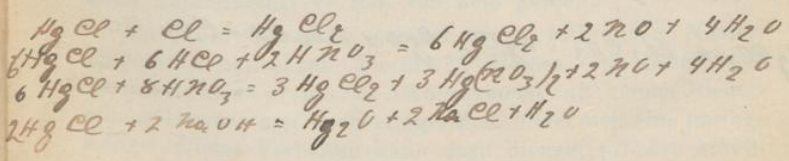 HgCl + Cl = HgCl2
6HgCl + 6HCl + 2HNO3 = 6HgCl2 + 2NO + 4H2O
6HgCl + 8HNO3 = 3HgCl2 + 3Hg(NO3)2 + 2NO + 4H2O
2HgCl + 2NaOH = Hg2O + 2NaCl + H2O